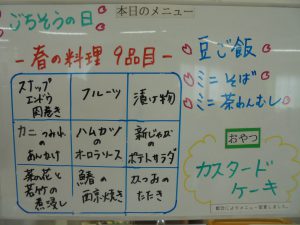 本日のメニュー
ごちそうの日
-春の料理 9品目-
スナップ
エンドウ
肉巻き
フルーツ
漬け物
カニつみれ
の
あんかけ
ハムカツ
の
オーロラソース
新じゃがの
ポテトサラダ
菜の花と
若竹の
煮浸し
鰆の
西京焼き
かつおの
たたき
豆ご飯
ミニそば
ミニ茶わんむし
おやつ
カスタード
ケーキ